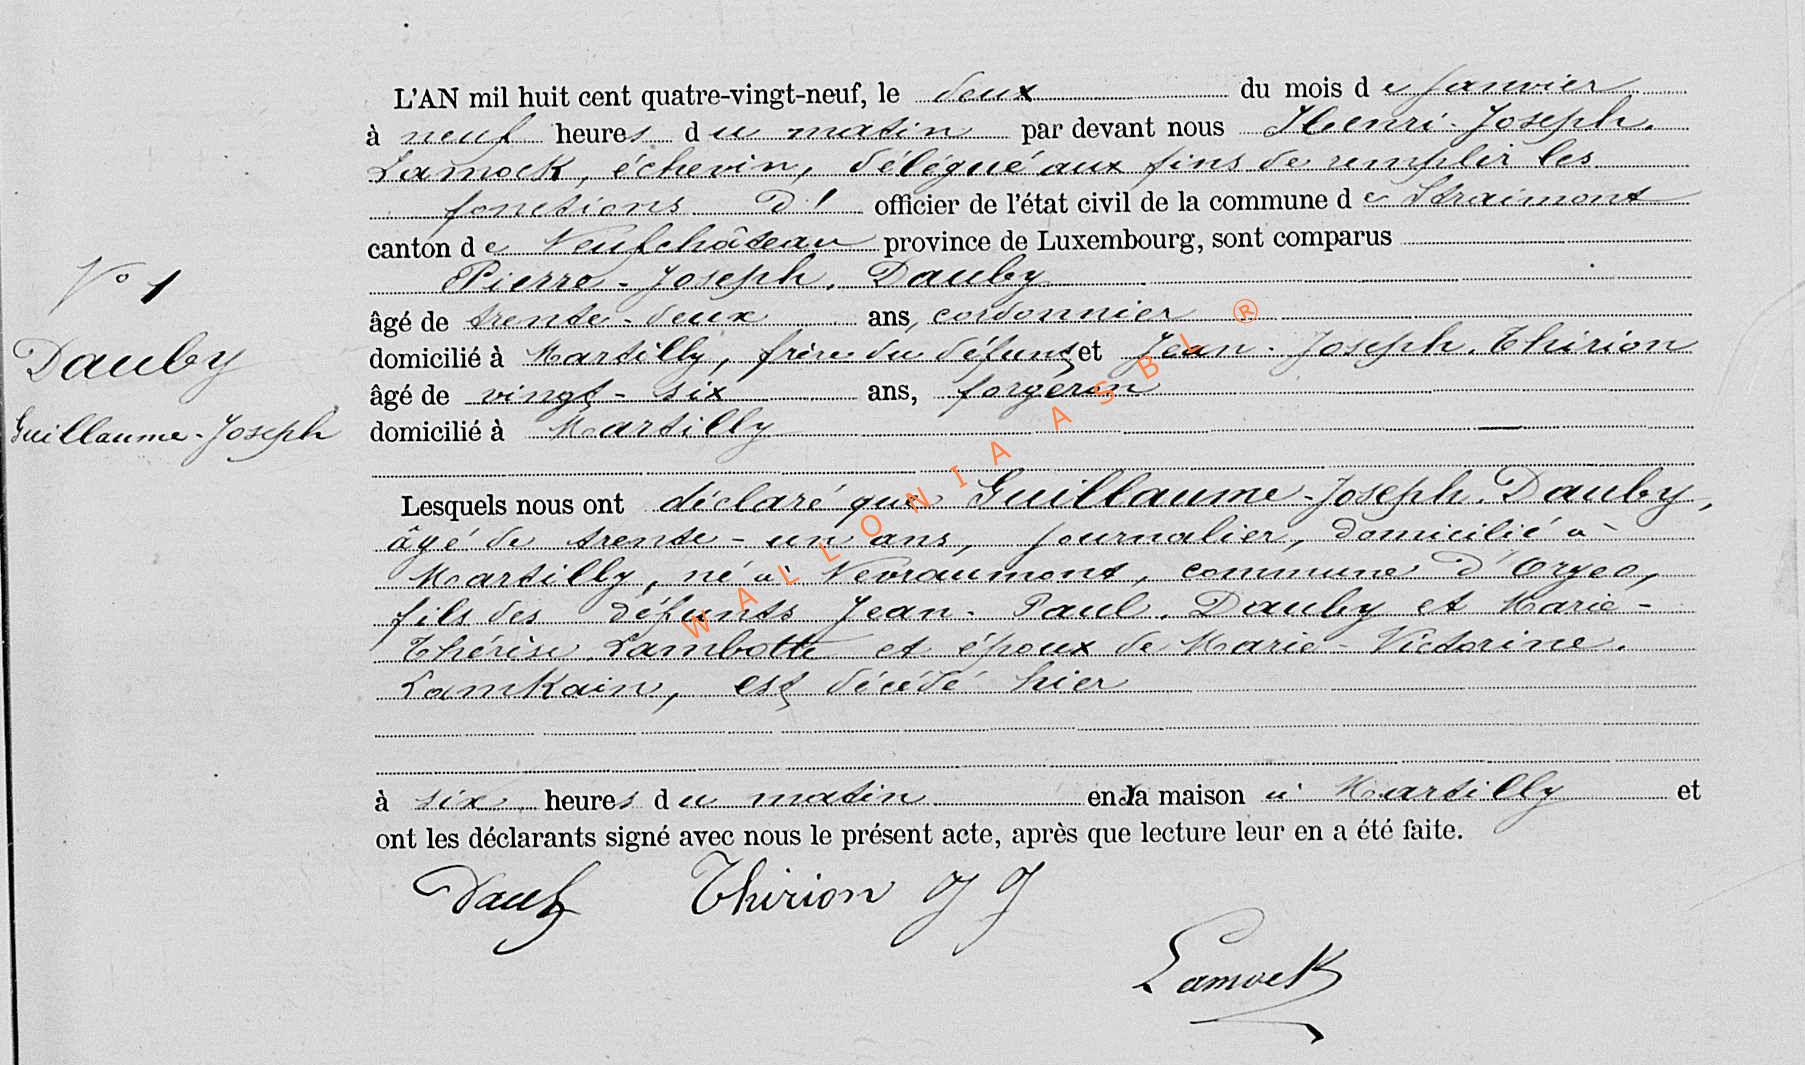 L'AN mil huit cent quatre-vingt-neuf, le deux du mois de Janvier
à neuf heures du matin par devant nous Henri-Joseph.
Lamock, échevin, délégué aux fins de remplir les
fonctions d' officier de l'état civil de la commune de Straimont
canton de Neufchâteau province de Luxembourg, sont comparus
Pierre-Joseph. Dauby
âgé de trente-deux ans, cordonnier
domicilié à Martilly, frère du défunt et Jean-Joseph. Thirion
âgé de vingt-six ans, forgeron
domicilié à Martilly
N° 1
Dauby
Guillaume-Joseph
Lesquels nous ont déclaré que Guillaume-Joseph. Dauby,
âgé de trente-un ans, journalier, domicilié à
Martilly, né à Nevraumont, commune d'Orgeo,
fils des défunts Jean-Paul. Dauby et Marie-
Thérèse Lambotte et époux de Marie-Victorine.
Lamkain, est décédé hier
à six heures du matin en la maison à Martilly et
ont les déclarants signé avec nous le présent acte, après que lecture leur en a été faite.
Dauby Thirion J J
Lamock
WALLONIA ASBL ®